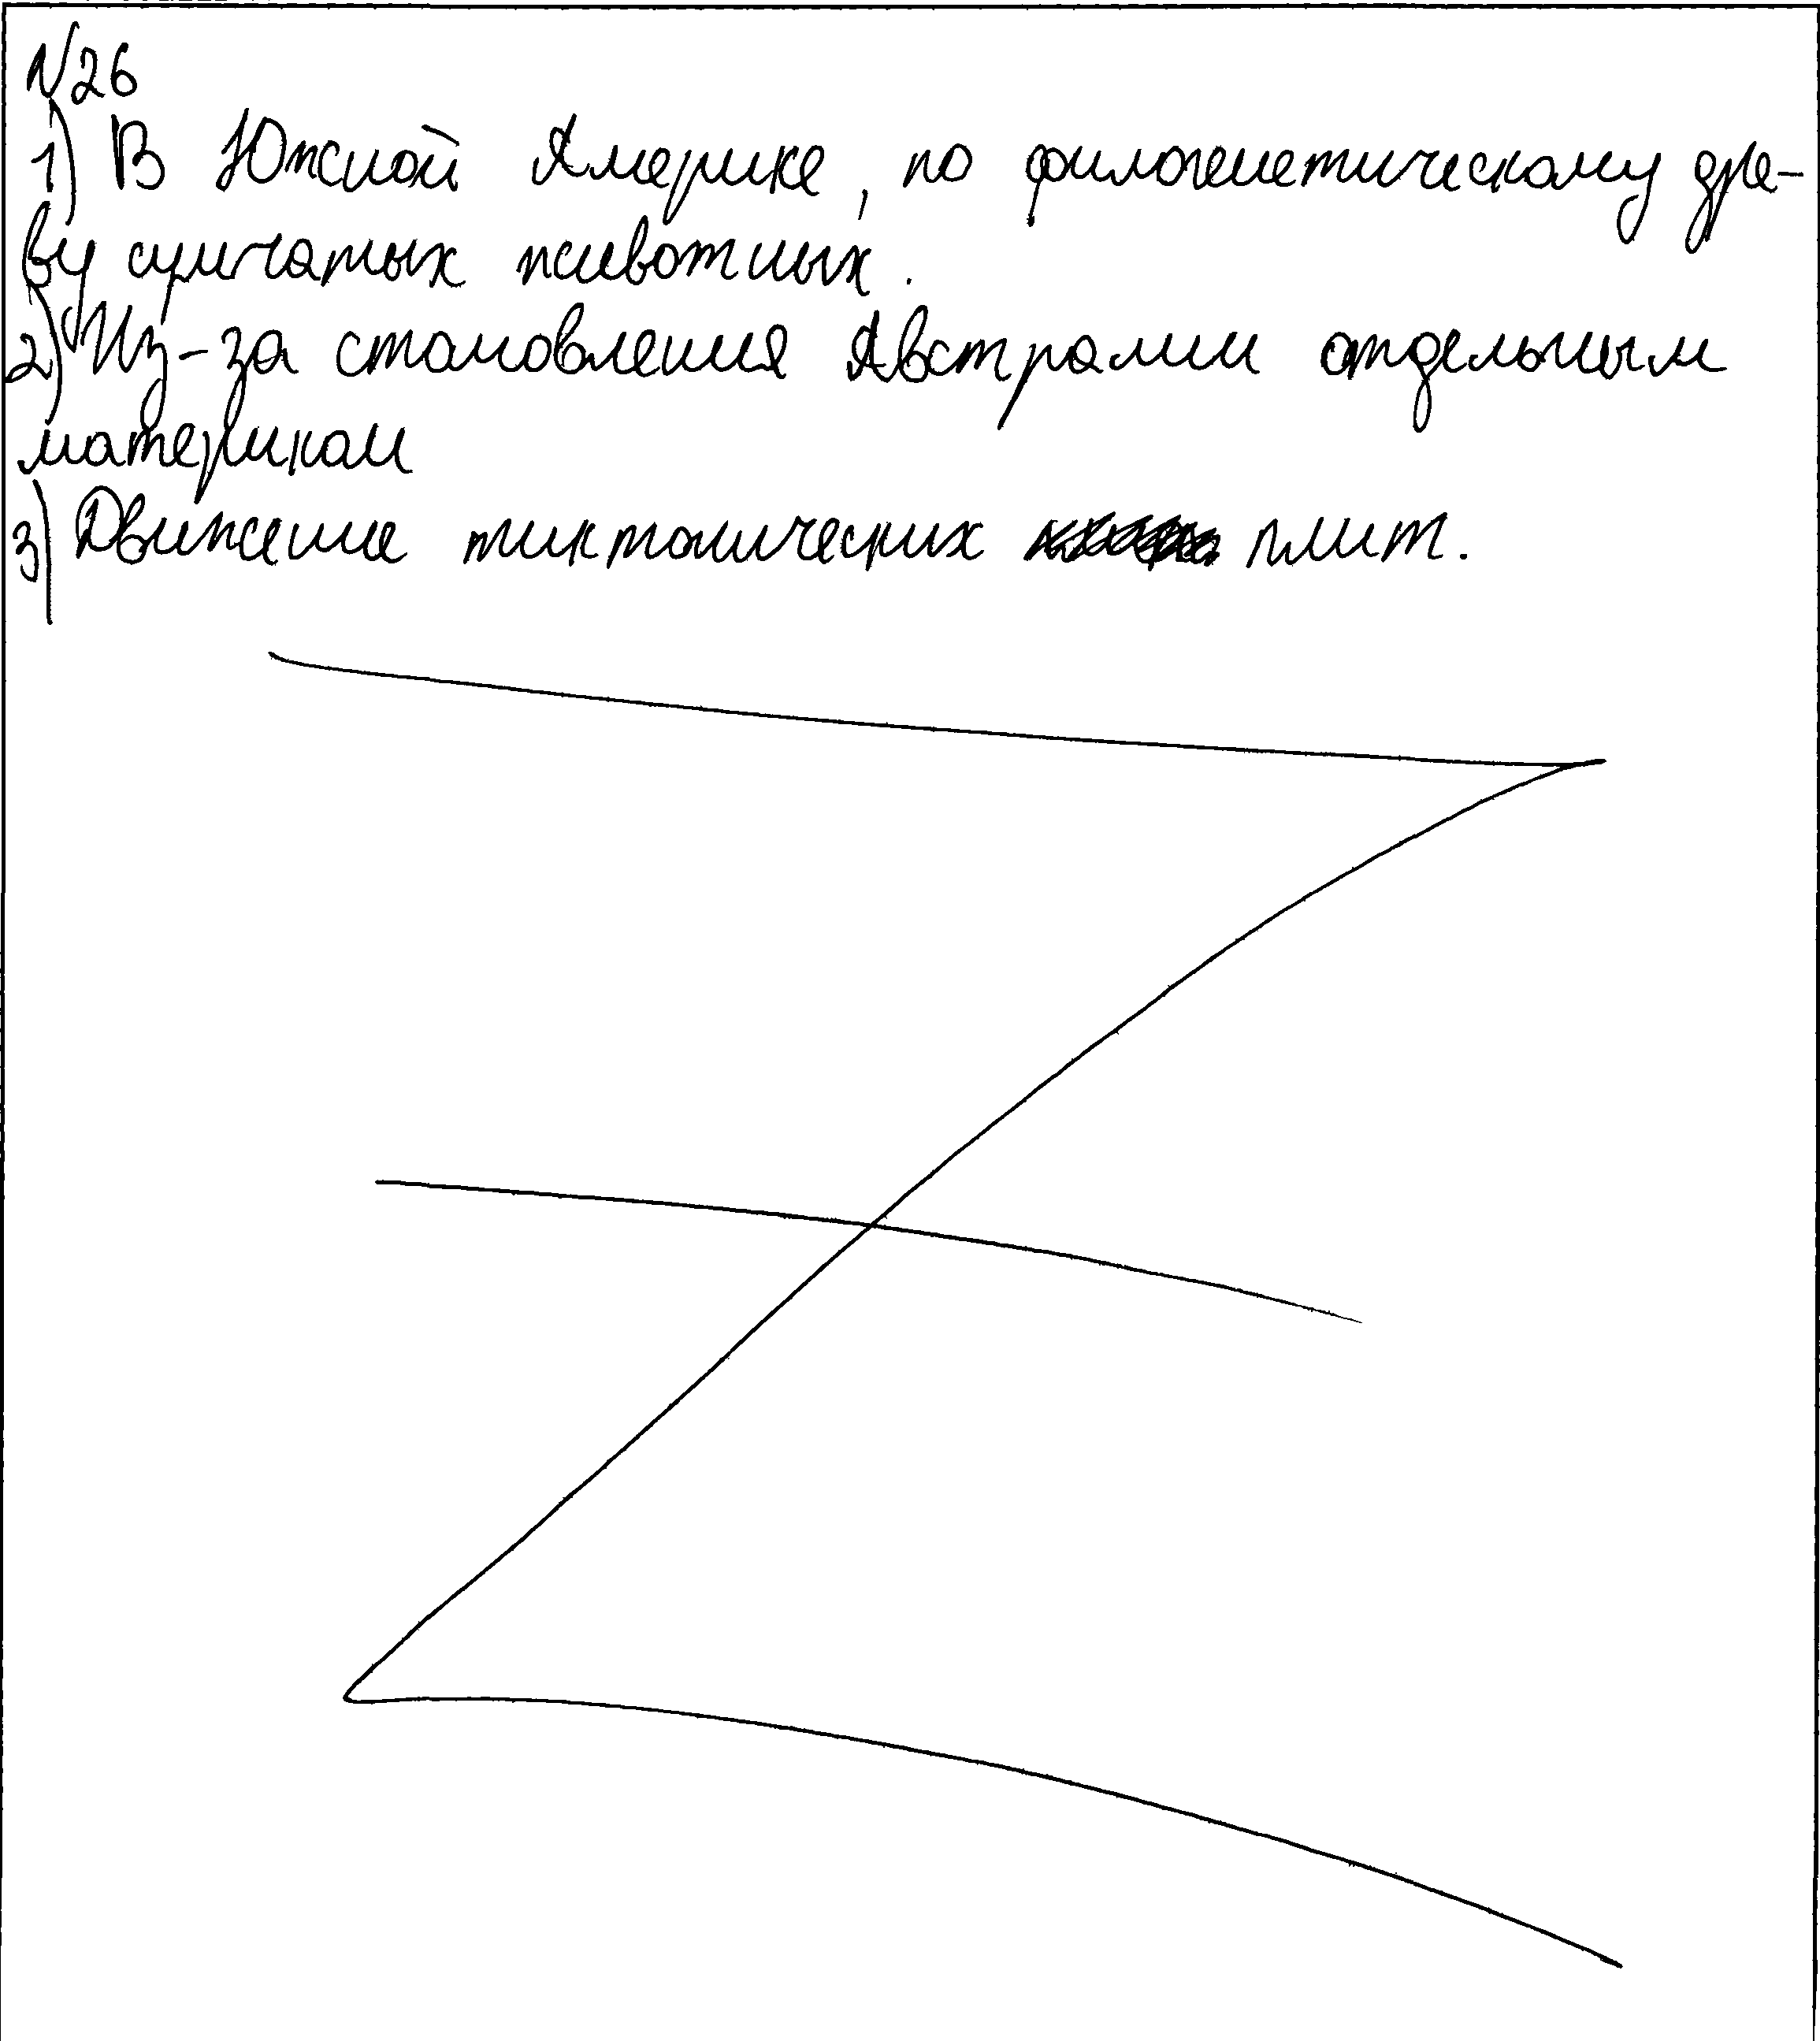 №26
1) В Южной Америке, по филогенетическому дре-
ву сумчатых животных.
2) Из-за становления Австралии отдельным
материком
3) Движение тиктонических плит.